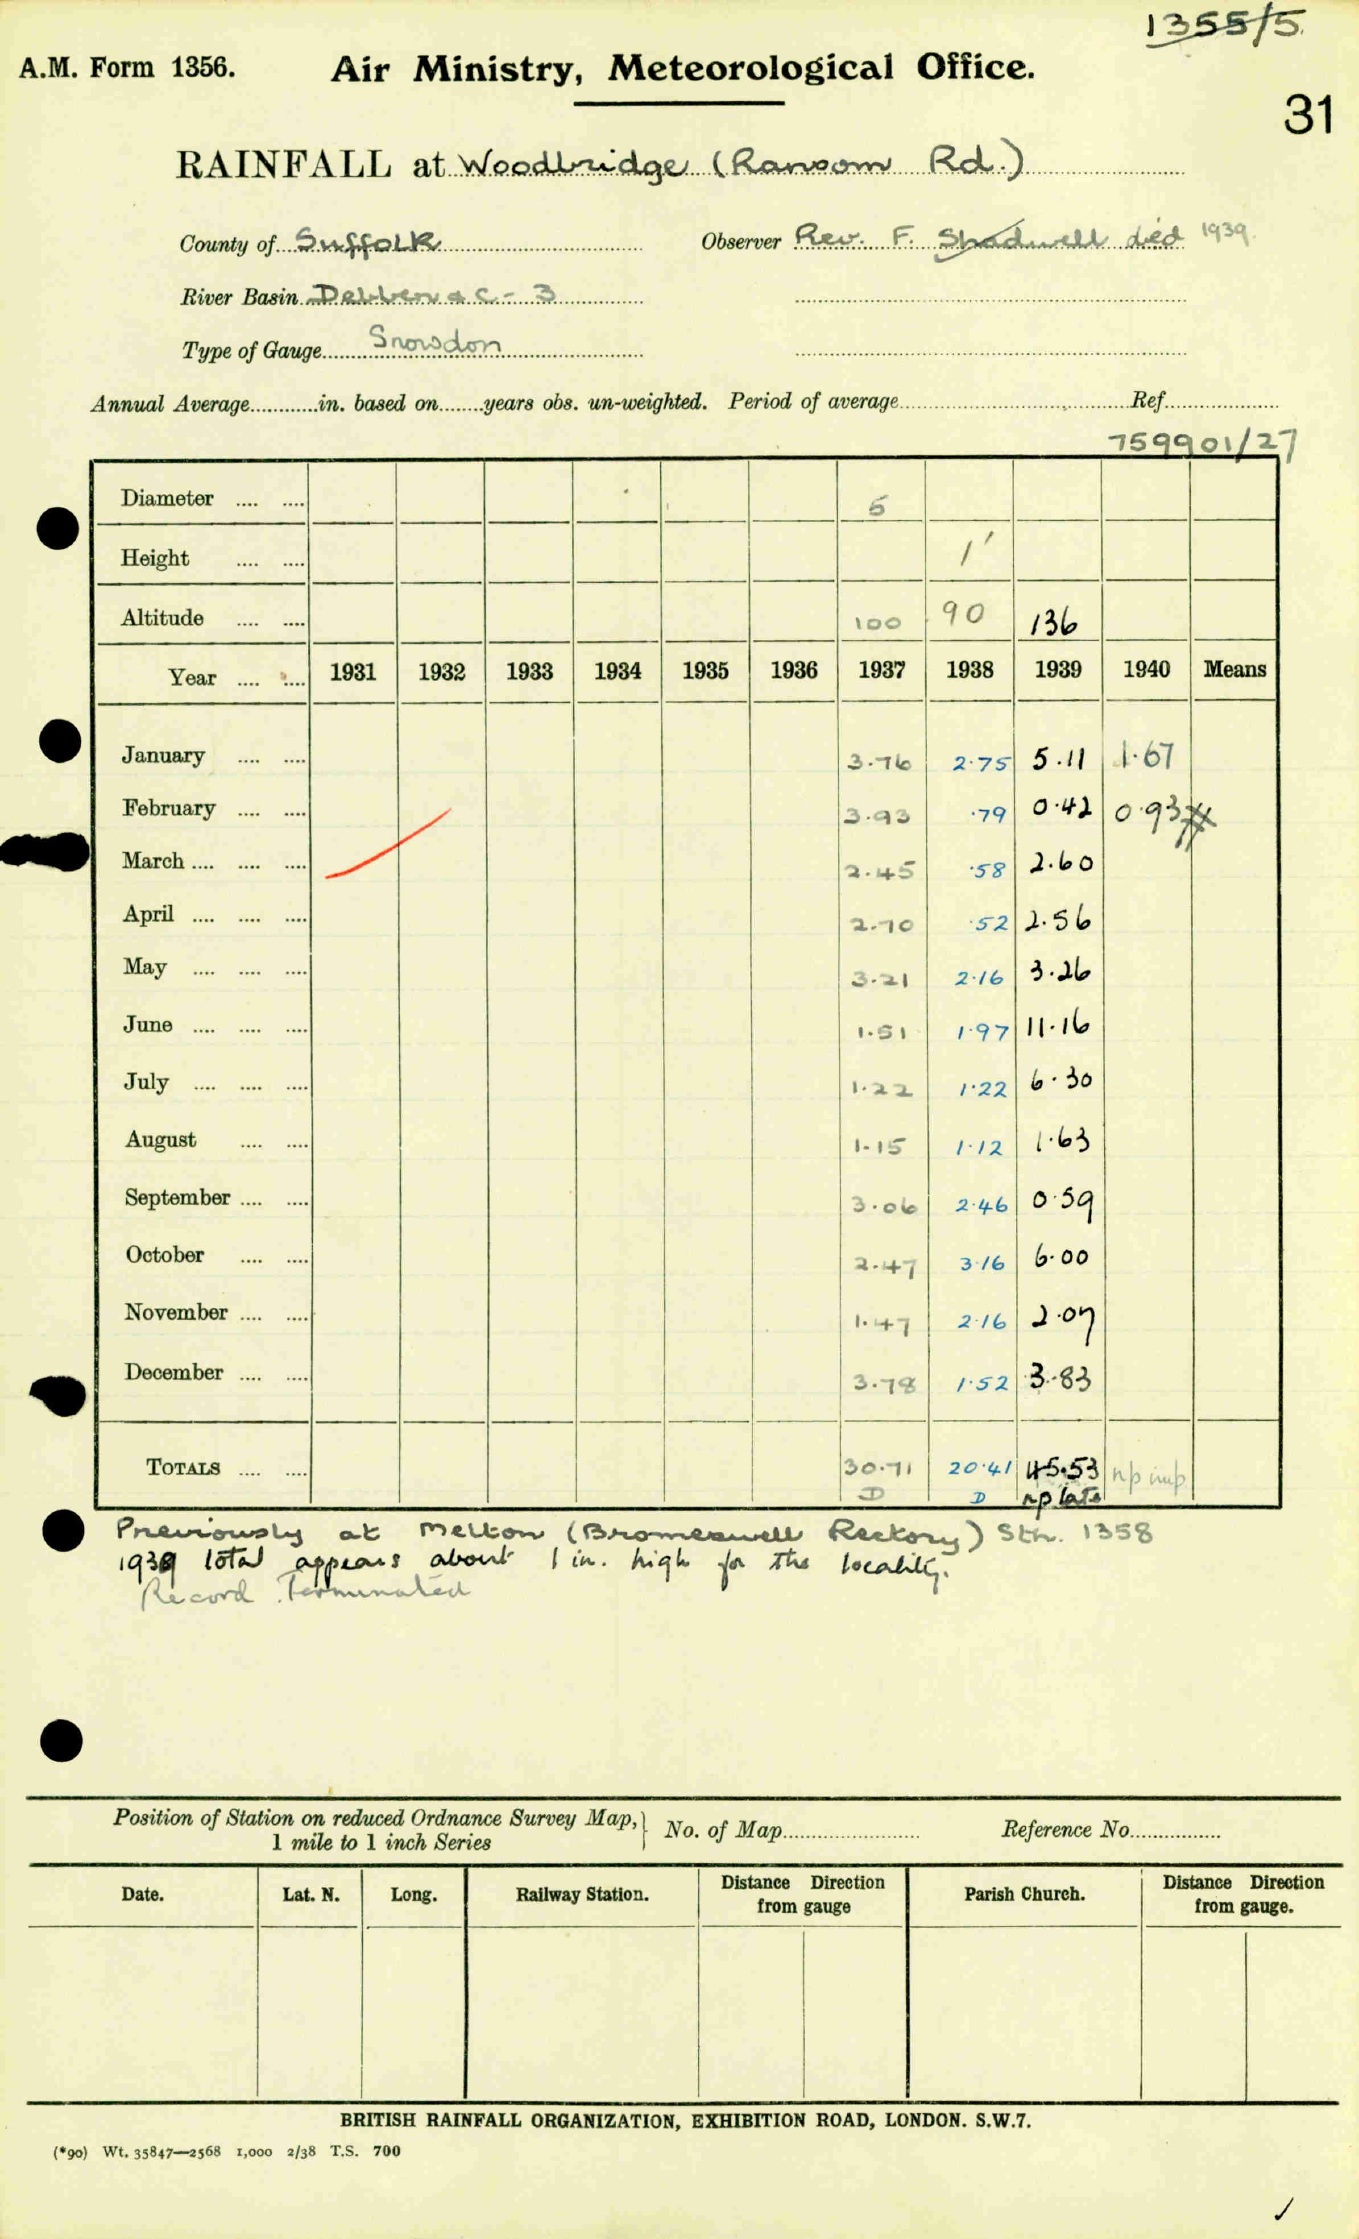 1355/5.
A.M. Form 1356. Air Ministry, Meteorological Office.
31
RAINFALL at Woodbridge (Ransom Rd.)
County of Suffolk Observer Rev. F. Shadwell died 1939.
River Basin Debben & C - 3
Type of Gauge Snowdon
Annual Average............in. based on........years obs. un-weighted. Period of average.............................Ref....................
759901/27
Diameter .... .... 5
Height .... .... 1'
Altitude .... .... 100 90 136
Year .... .... 1931 1932 1933 1934 1935 1936 1937 1938 1939 1940 Means
January .... .... 3.76 2.75 5.11 1.67
February .... .... 3.93 .79 0.42 0.93
March .... .... .... 2.45 .58 2.60
April .... .... .... 2.70 .52 2.56
May .... .... .... 3.21 2.16 3.26
June .... .... .... 1.51 1.97 11.16
July .... .... .... 1.22 1.22 6.30
August .... .... 1.15 1.12 1.63
September .... .... 3.06 2.46 0.59
October .... .... 2.47 3.16 6.00
November .... .... 1.47 2.16 2.07
December .... .... 3.78 1.52 3.83
TOTALS .... .... 30.71 20.41 45.53 np imp
D D np late
Previously at Melton (Bromeswell Rectory) Stn. 1358
1939 total appears about 1 in. high for the locality.
Record Terminated
Position of Station on reduced Ordnance Survey Map, 1 mile to 1 inch Series No. of Map........................ Reference No................
Date. Lat. N. Long. Railway Station. Distance Direction from gauge Parish Church. Distance Direction from gauge.
BRITISH RAINFALL ORGANIZATION, EXHIBITION ROAD, LONDON. S.W.7.
(*90) Wt. 35847—2568 1,000 2/38 T.S. 700